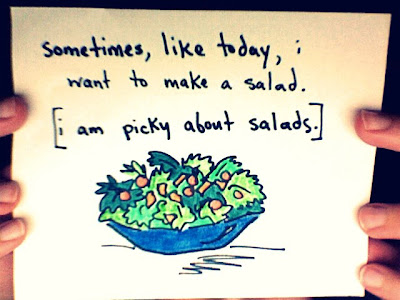 sometimes, like today, i
want to make a salad.
[i am picky about salads.]